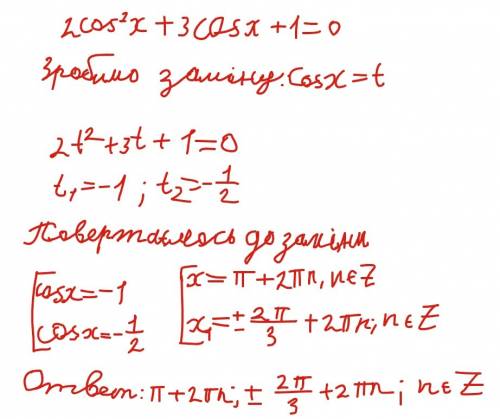 2cos²x + 3cosx + 1 = 0
Зробимо заміну: cosx = t
2t² + 3t + 1 = 0
t₁ = -1 ; t₂ = -1/2
Повертаємось до заміни
[cosx = -1 [x = π + 2πn, n ∈ Z
[cosx = -1/2 [x₁ = ± 2π/3 + 2πn; n ∈ Z
Ответ: π + 2πn; ± 2π/3 + 2πn ; n ∈ Z